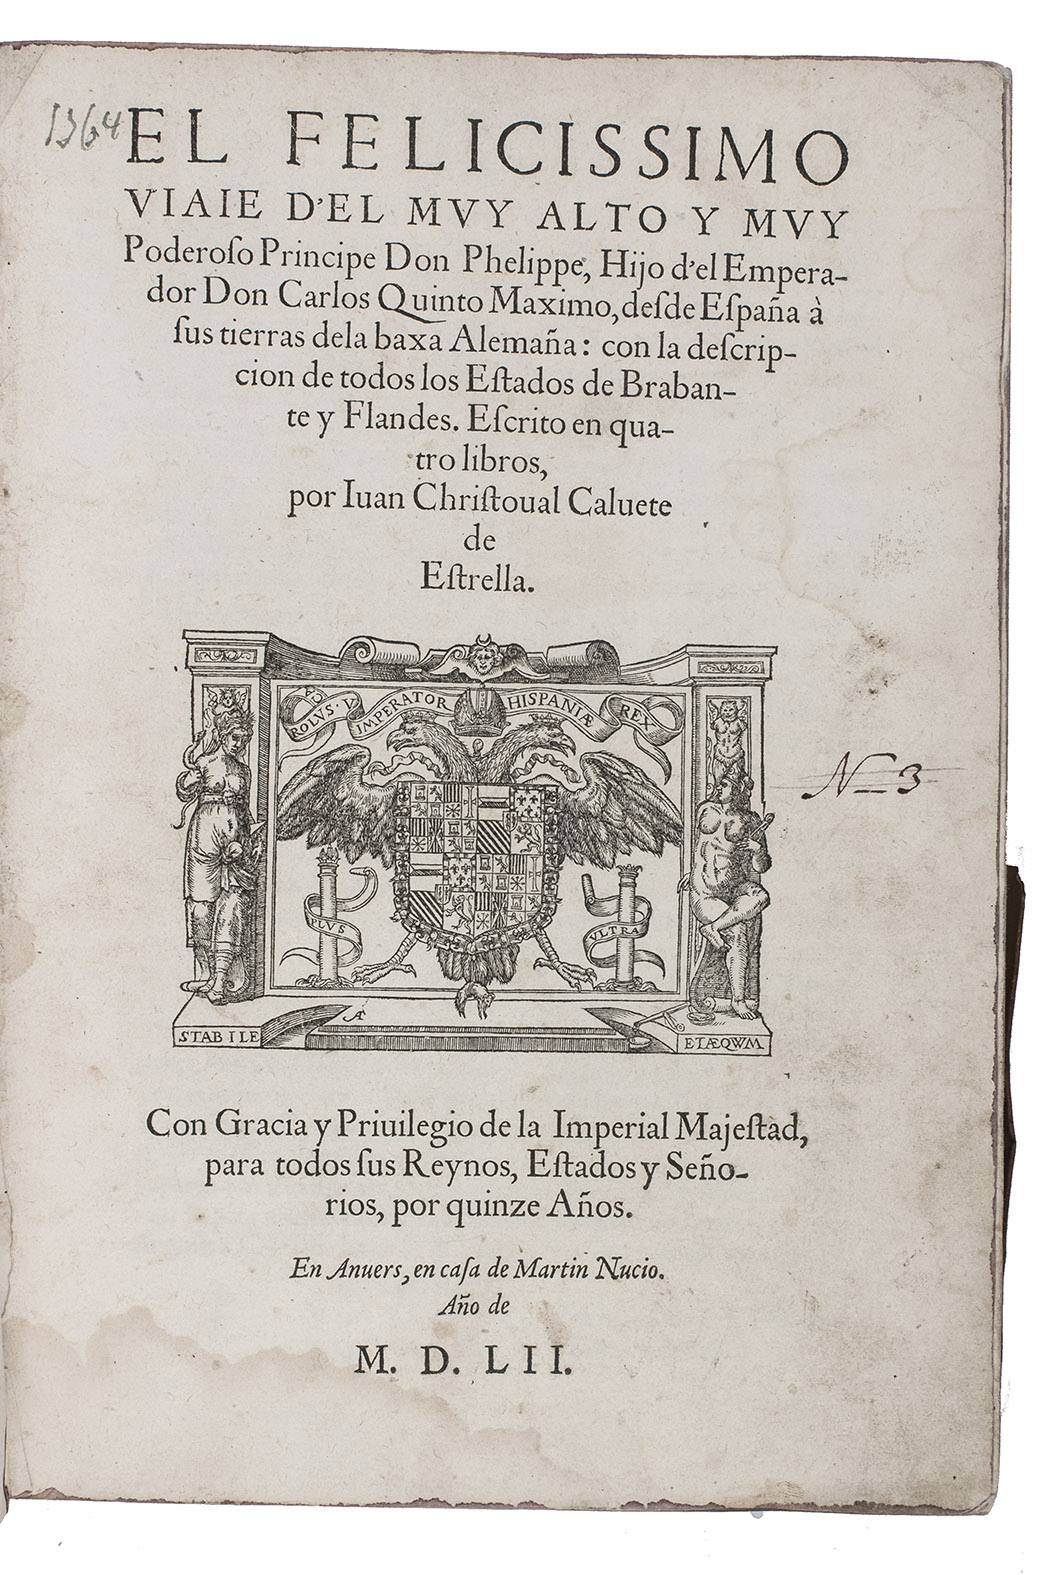 1364
EL FELICISSIMO
VIAIE D'EL MVY ALTO Y MVY
Poderoſo Principe Don Phelippe, Hijo d'el Empera-
dor Don Carlos Quinto Maximo, deſde Eſpaña à
ſus tierras dela baxa Alemaña: con la deſcrip-
cion de todos los Eſtados de Braban-
te y Flandes. Eſcrito en qua-
tro libros,
por Iuan Chriſtoual Caluete
de
Eſtrella.
ROLVS · V IMPERATOR HISPANIÆ REX
N 3
LVS VLTRA
STABILE ETÆQWM
Con Gracia y Priuilegio de la Imperial Majeſtad,
para todos ſus Reynos, Eſtados y Seño-
rios, por quinze Años.
En Anuers, en caſa de Martin Nucio.
Año de
M. D. LII.